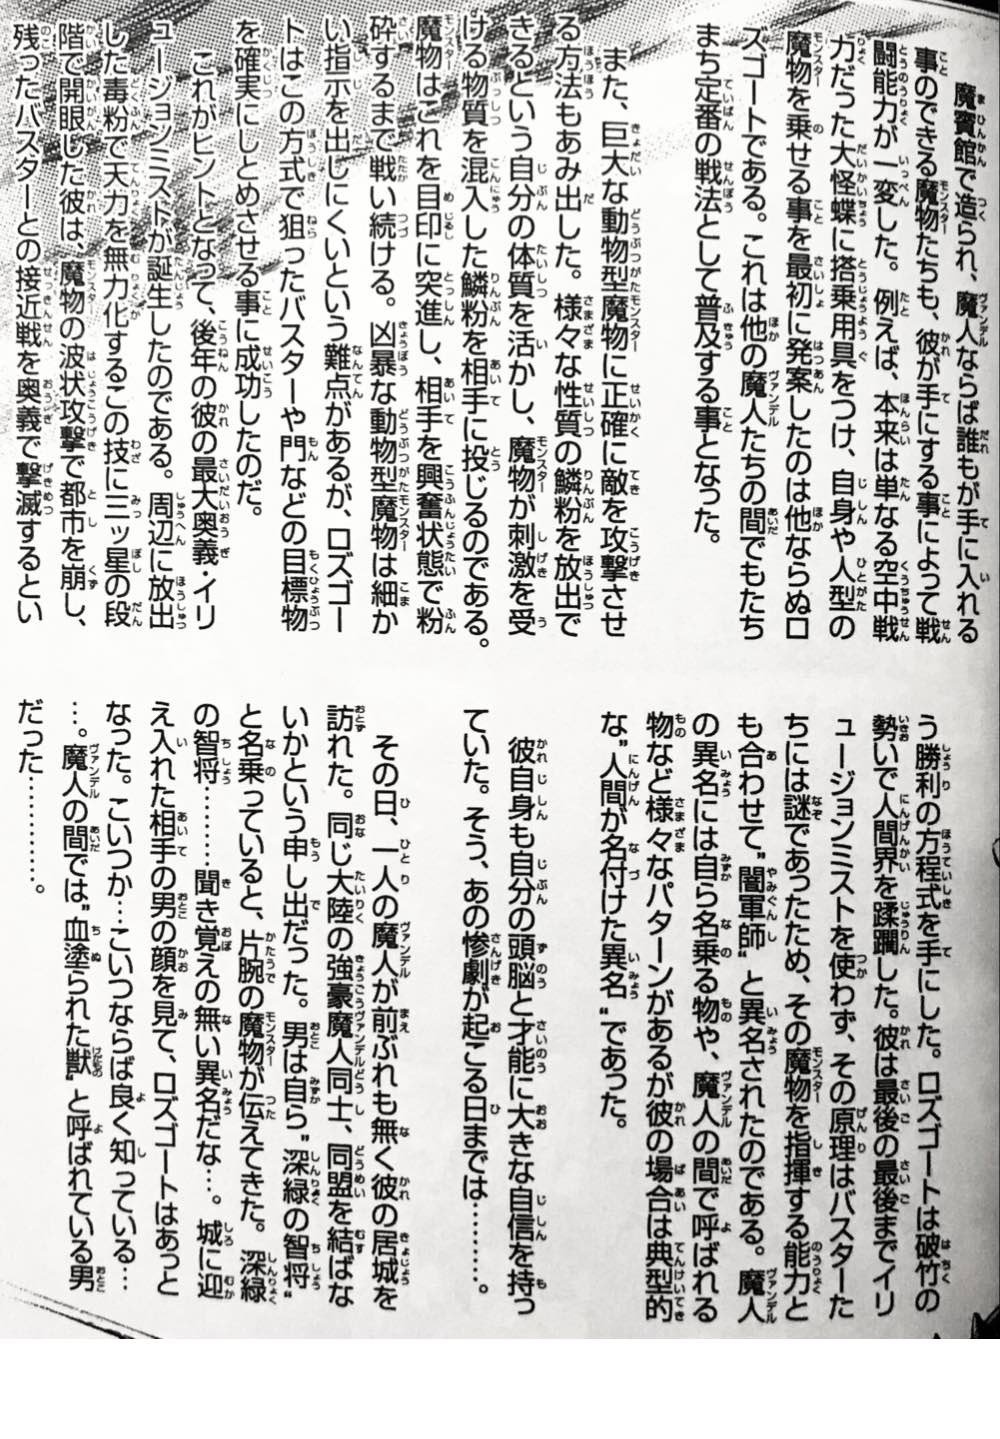 魔賓館で造られ、魔人ならば誰もが手に入れる
事のできる魔物たちも、彼が手にする事によって戦
闘能力が一変した。例えば、本来は単なる空中戦
力だった大怪蝶に搭乗用具をつけ、自身や人型の
魔物を乗せる事を最初に発案したのは他ならぬロ
ズゴートである。これは他の魔人たちの間でもたち
まち定番の戦法として普及する事となった。
また、巨大な動物型魔物に正確に敵を攻撃させ
る方法もあみ出した。様々な性質の鱗粉を放出で
きるという自分の体質を活かし、魔物が刺激を受
ける物質を混入した鱗粉を相手に投じるのである。
魔物はこれを目印に突進し、相手を興奮状態で粉
砕するまで戦い続ける。凶暴な動物型魔物は細か
い指示を出しにくいという難点があるが、ロズゴー
トはこの方式で狙ったバスターや門などの目標物
を確実にしとめさせる事に成功したのだ。
これがヒントとなって、後年の彼の最大奥義・イリ
ュージョンミストが誕生したのである。周辺に放出
した毒粉で天力を無力化するこの技に三ッ星の段
階で開眼した彼は、魔物の波状攻撃で都市を崩し、
残ったバスターとの接近戦を奥義で撃滅するとい
う勝利の方程式を手にした。ロズゴートは破竹の
勢いで人間界を蹂躙した。彼は最後の最後までイリ
ュージョンミストを使わず、その原理はバスターた
ちには謎であったため、その魔物を指揮する能力と
も合わせて〝闇軍師〟と異名されたのである。魔人
の異名には自ら名乗る物や、魔人の間で呼ばれる
物など様々なパターンがあるが彼の場合は典型的
な〝人間が名付けた異名〟であった。
彼自身も自分の頭脳と才能に大きな自信を持っ
ていた。そう、あの惨劇が起こる日までは………。
その日、一人の魔人が前ぶれも無く彼の居城を
訪れた。同じ大陸の強豪魔人同士、同盟を結ばな
いかという申し出だった。男は自ら〝深緑の智将〟
と名乗っていると、片腕の魔物が伝えてきた。深緑
の智将………聞き覚えの無い異名だな…。城に迎
え入れた相手の男の顔を見て、ロズゴートはあっと
なった。こいつか…こいつならば良く知っている…
…。魔人の間では〝血塗られた獣〟と呼ばれている男
だった…………。